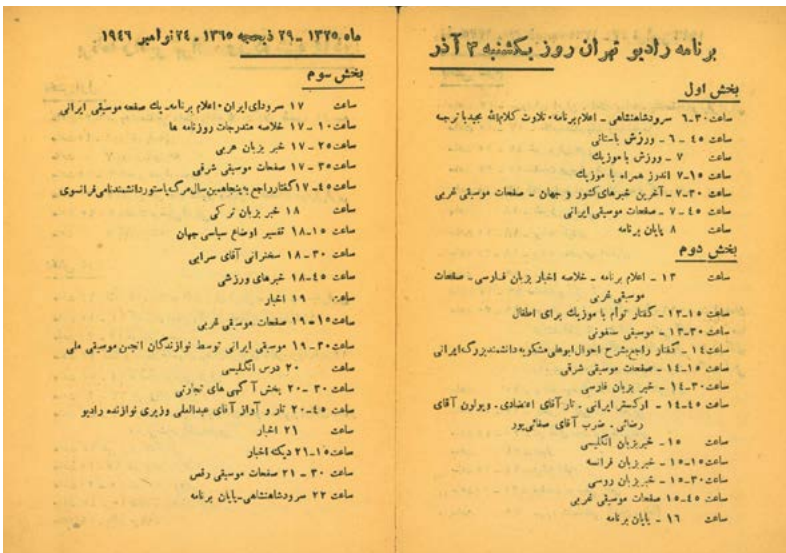 برنامه رادیو تهران روز یکشنبه ۳ آذر
بخش اول
ساعت ۳۰-۶ سرود شاهنشاهی - اعلام برنامه - تلاوت کلام‌الله مجید با ترجمه
ساعت ۴۵ - ۶ - ورزش باستانی
ساعت ۷ - ورزش با موزیک
ساعت ۱۵-۷ اندرز همراه با موزیک
ساعت ۳۰-۷ - آخرین خبرهای کشور و جهان - صفحات موسیقی غربی
ساعت ۴۵ - ۷ - صفحات موسیقی ایرانی
ساعت ۸ پایان برنامه
بخش دوم
ساعت ۱۳ - اعلام برنامه - خلاصه اخبار بزبان فارسی - صفحات
موسیقی غربی
ساعت ۱۵-۱۳ - گفتار توأم با موزیک برای اطفال
ساعت ۳۰-۱۳ - موسیقی سنفونی
ساعت ۱۴ - گفتار راجع بشرح احوال ابوعلی مشکویه دانشمند بزرگ ایرانی
ساعت ۱۵-۱۴ - صفحات موسیقی شرقی
ساعت ۳۰-۱۴ - خبر بزبان فارسی
ساعت ۴۵-۱۴ - ارکستر ایرانی - تار آقای اعتضادی - ویولون آقای
رضائی - ضرب آقای صفائی‌پور
ساعت ۱۵ - خبر بزبان انگلیسی
ساعت ۱۵-۱۵ - خبر بزبان فرانسه
ساعت ۳۰-۱۵ - خبر بزبان روسی
ساعت ۴۵-۱۵ صفحات موسیقی غربی
ساعت ۱۶ - پایان برنامه
ماه ۱۳۲۵ - ۲۹ ذیحجه ۱۳۶۵ - ۲۴ نوامبر ۱۹۴۶
بخش سوم
ساعت ۱۷ سرود ای ایران - اعلام برنامه - یک صفحه موسیقی ایرانی
ساعت ۱۰ - ۱۷ خلاصه مندرجات روزنامه ها
ساعت ۲۵ - ۱۷ خبر بزبان عربی
ساعت ۳۵ - ۱۷ صفحات موسیقی شرقی
ساعت ۴۵-۱۷ گفتار راجع به پنجاهمین سال مرگ پاستور دانشمند نامی فرانسوی
ساعت ۱۸ خبر بزبان ترکی
ساعت ۱۵-۱۸ تفسیر اوضاع سیاسی جهان
ساعت ۳۰ - ۱۸ سخنرانی آقای سرابی
ساعت ۴۵-۱۸ خبرهای ورزشی
ساعت ۱۹ اخبار
ساعت ۱۵ - ۱۹ صفحات موسیقی غربی
ساعت ۳۰ - ۱۹ موسیقی ایرانی توسط نوازندگان انجمن موسیقی ملی
ساعت ۲۰ درس انگلیسی
ساعت ۳۰ - ۲۰ پخش آگهی های تجارتی
ساعت ۴۵-۲۰ تار و آواز آقای عبدالعلی وزیری نوازنده رادیو
ساعت ۲۱ اخبار
ساعت ۱۵-۲۱ دیکته اخبار
ساعت ۳۰ - ۲۱ صفحات موسیقی رقص
ساعت ۲۲ سرود شاهنشاهی - پایان برنامه